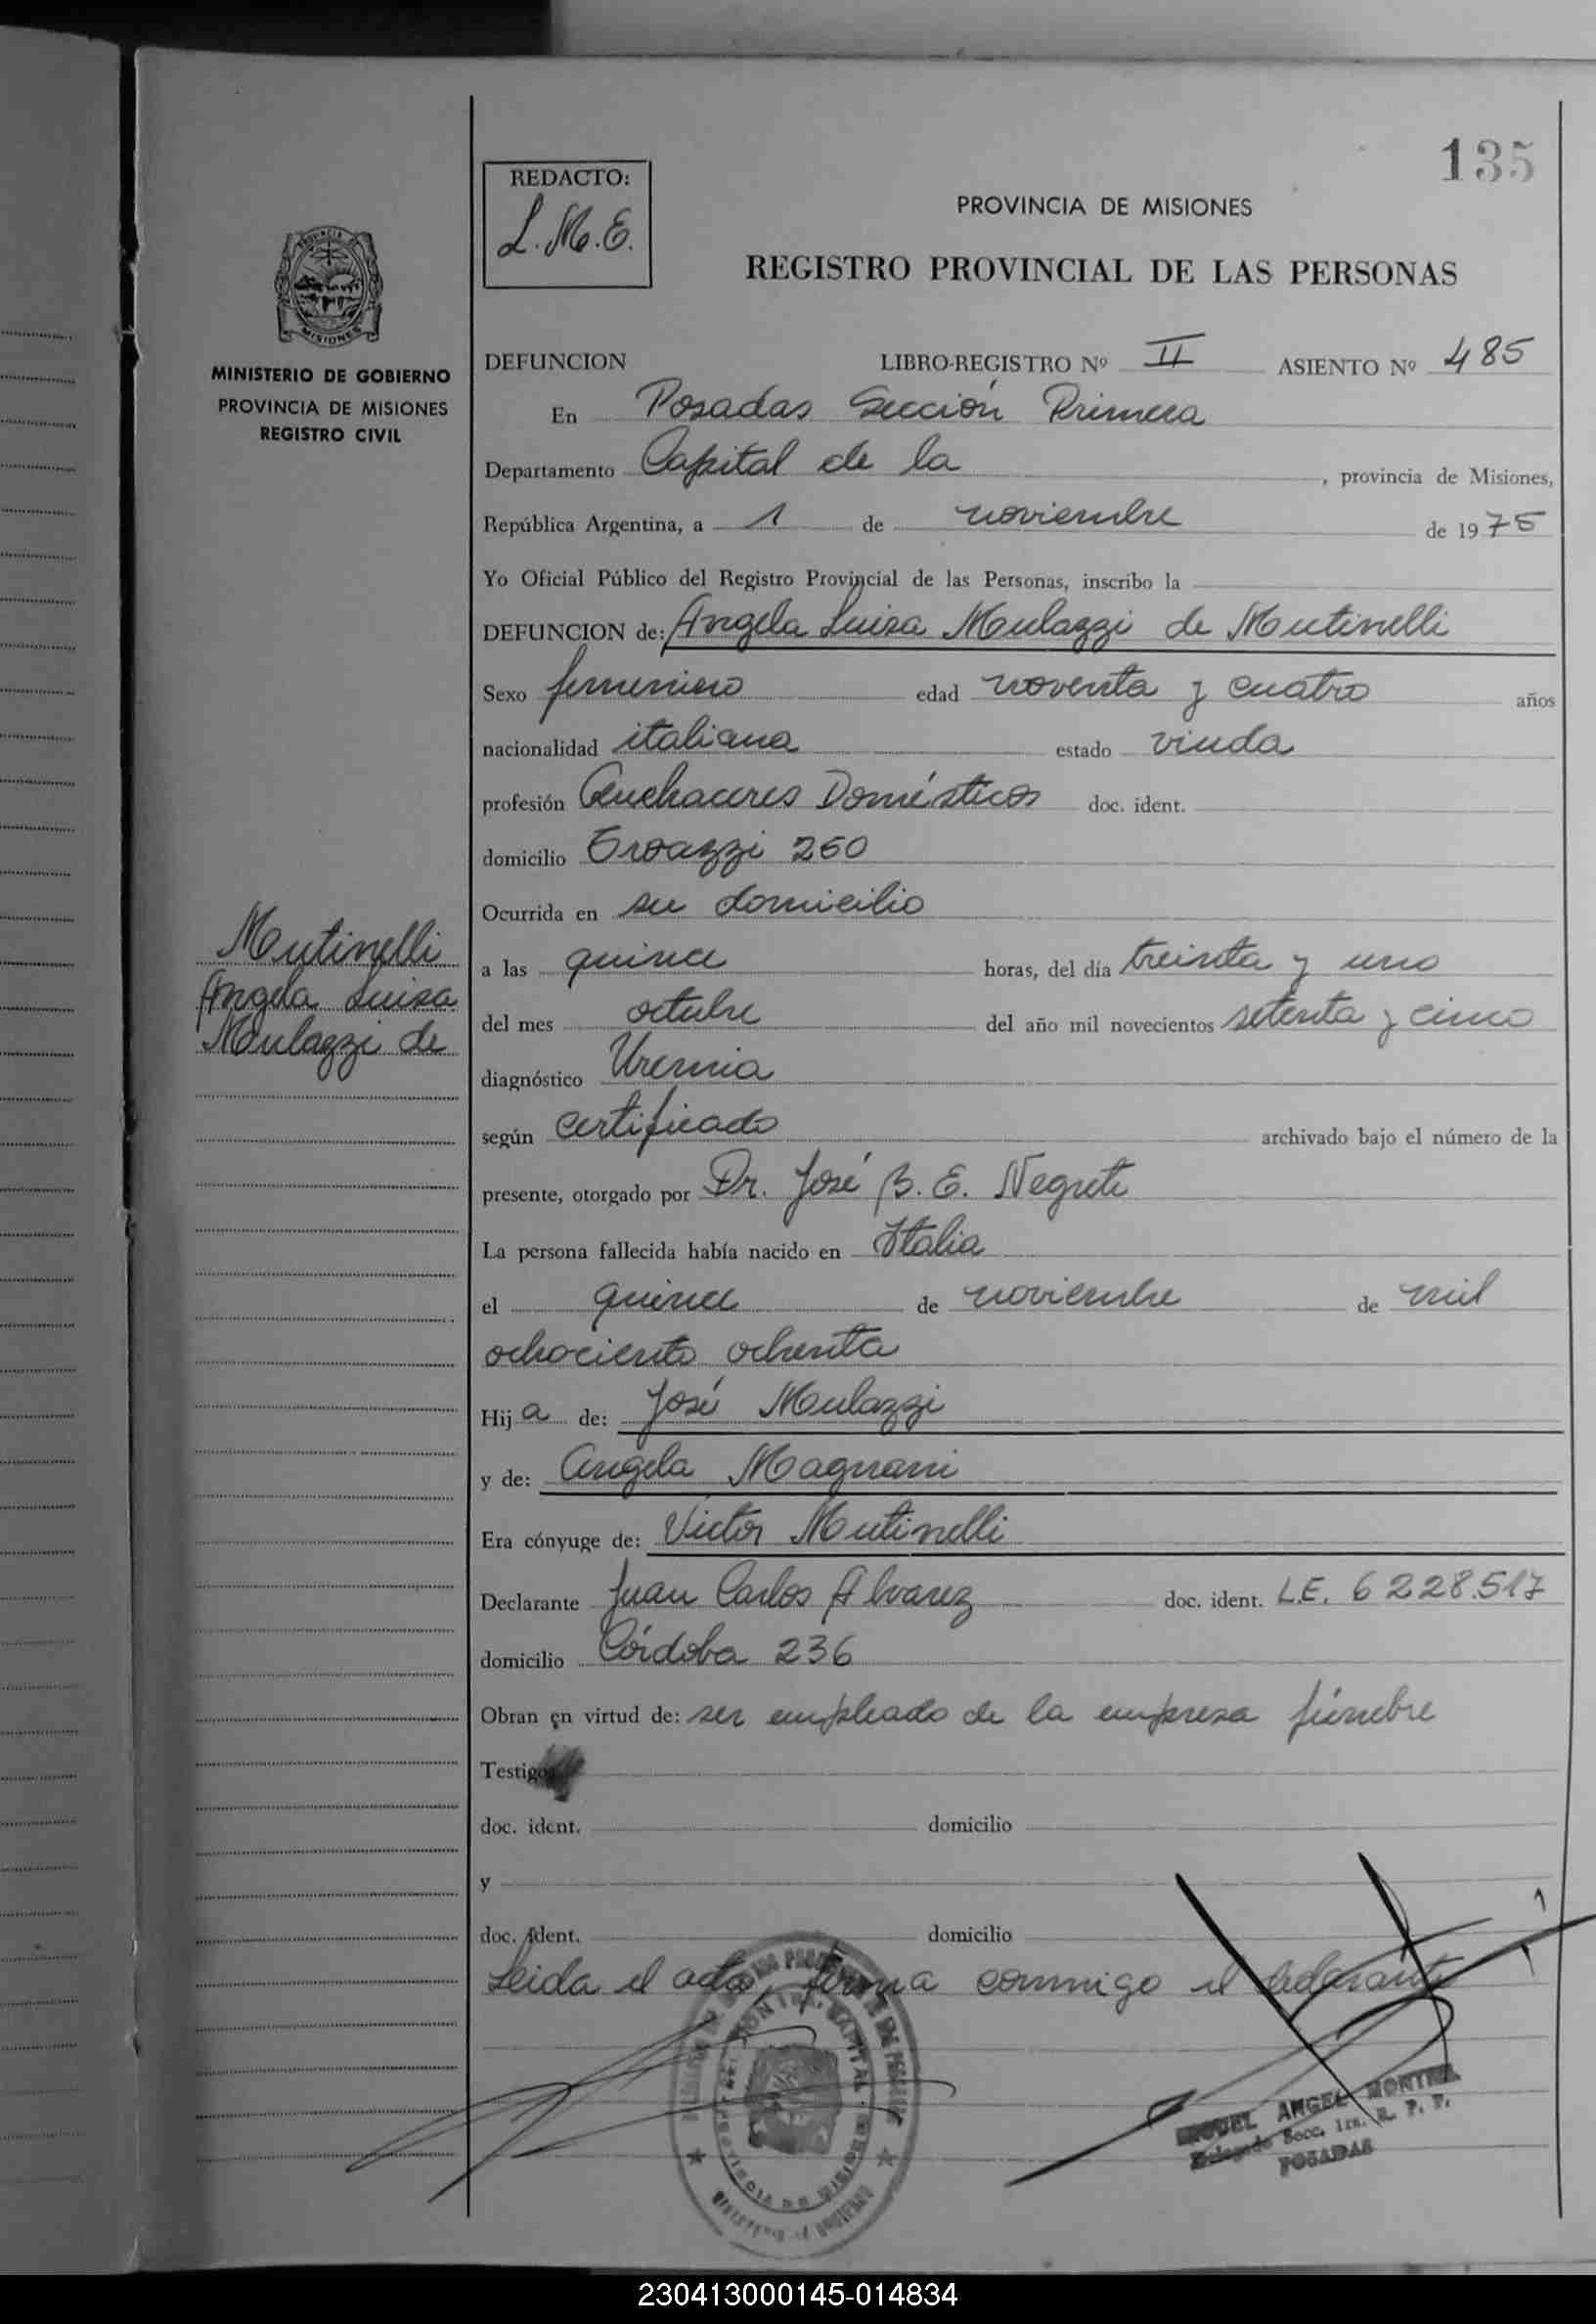 135
REDACTO:
L.M.E.
PROVINCIA DE MISIONES
REGISTRO PROVINCIAL DE LAS PERSONAS
MISIONES
MINISTERIO DE GOBIERNO
PROVINCIA DE MISIONES
REGISTRO CIVIL
DEFUNCION LIBRO-REGISTRO Nº II ASIENTO Nº 485
En Posadas Sección Primera
Departamento Capital de la , provincia de Misiones,
República Argentina, a 1 de noviembre de 1975
Yo Oficial Público del Registro Provincial de las Personas, inscribo la
DEFUNCION de: Angela Luisa Mulazzi de Mutinelli
Sexo femenino edad noventa y cuatro años
nacionalidad italiana estado viuda
profesión Quehaceres Domésticos doc. ident.
domicilio Troazzi 260
Ocurrida en su domicilio
Mutinelli
Angela Luisa
Mulazzi de
a las quince horas, del día treinta y uno
del mes octubre del año mil novecientos setenta y cinco
diagnóstico Uremia
según certificado archivado bajo el número de la
presente, otorgado por Dr. José B. E. Negrete
La persona fallecida había nacido en Italia
el quince de noviembre de mil
ochociento ochenta
Hij a de: José Mulazzi
y de: Angela Magnani
Era cónyuge de: Victor Mutinelli
Declarante Juan Carlos Alvarez doc. ident. L.E. 6228.517
domicilio Córdoba 236
Obran en virtud de: ser empleado de la empresa fúnebre
Testigos
doc. ident. domicilio
y
doc. ident. domicilio
Leida el acta, firma conmigo el declarante
MIGUEL ANGEL
Delegado Secc. 1ra. R. P. P.
POSADAS
230413000145-014834